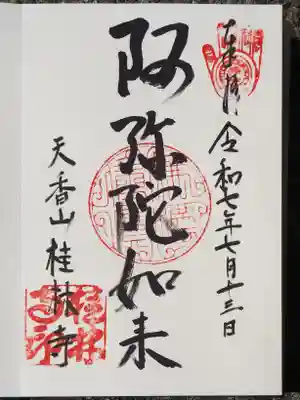 奉拝
令和七年七月十三日
阿弥陀如来
天香山 桂林寺